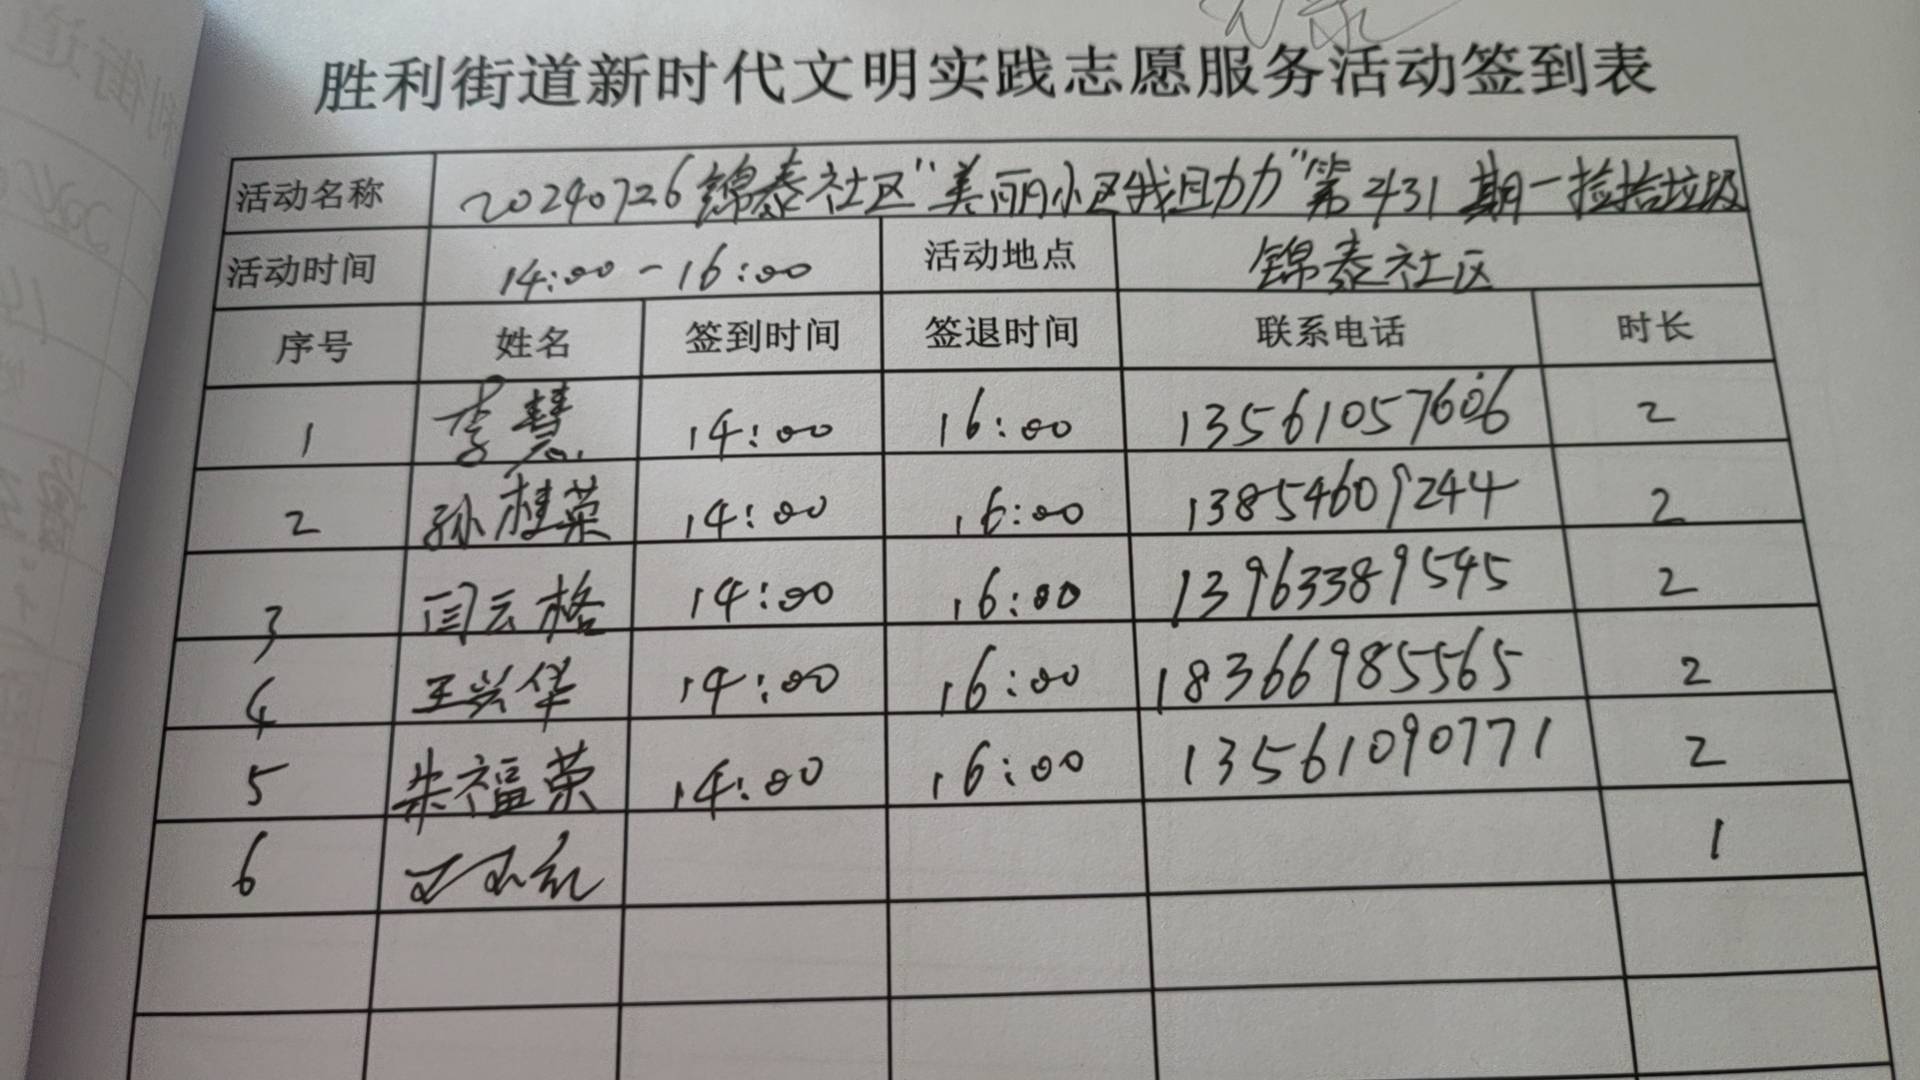 胜利街道新时代文明实践志愿服务活动签到表
活动名称 20240726锦泰社区“美丽小区我助力”第431期一捡拾垃圾
活动时间 14:00-16:00 活动地点 锦泰社区
序号 姓名 签到时间 签退时间 联系电话 时长
1 李慧 14:00 16:00 13561057606 2
2 孙桂荣 14:00 16:00 13854609244 2
3 闫云格 14:00 16:00 13963389545 2
4 王兴华 14:00 16:00 18366985565 2
5 朱福荣 14:00 16:00 13561090771 2
6 1